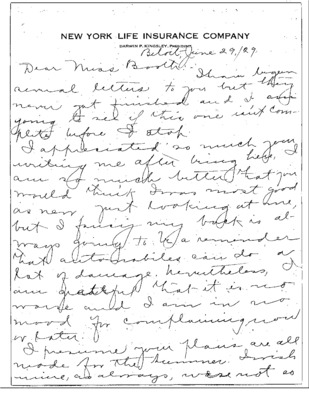 NEW YORK LIFE INSURANCE COMPANY
DARWIN P. KINGSLEY, PRESIDENT
Beloit, June 29/29
Dear Miss Booth:
I have begun
several letters to you but they
never get finished and I am
going to see if this one isn't com-
pleted before I stop
I appreciated so much your
writing me after being here. I
am so much better that you
would think I was most good
as new, just looking at me,
but I fancy my back is al-
ways going to be a reminder
that automobiles can do a
lot of damage. Nevertheless, I
am grateful that it is no
worse and I am in no
mood for complaining now
or later.
I presume your plans are all
made for the summer. I wish
mine, as always, were not so